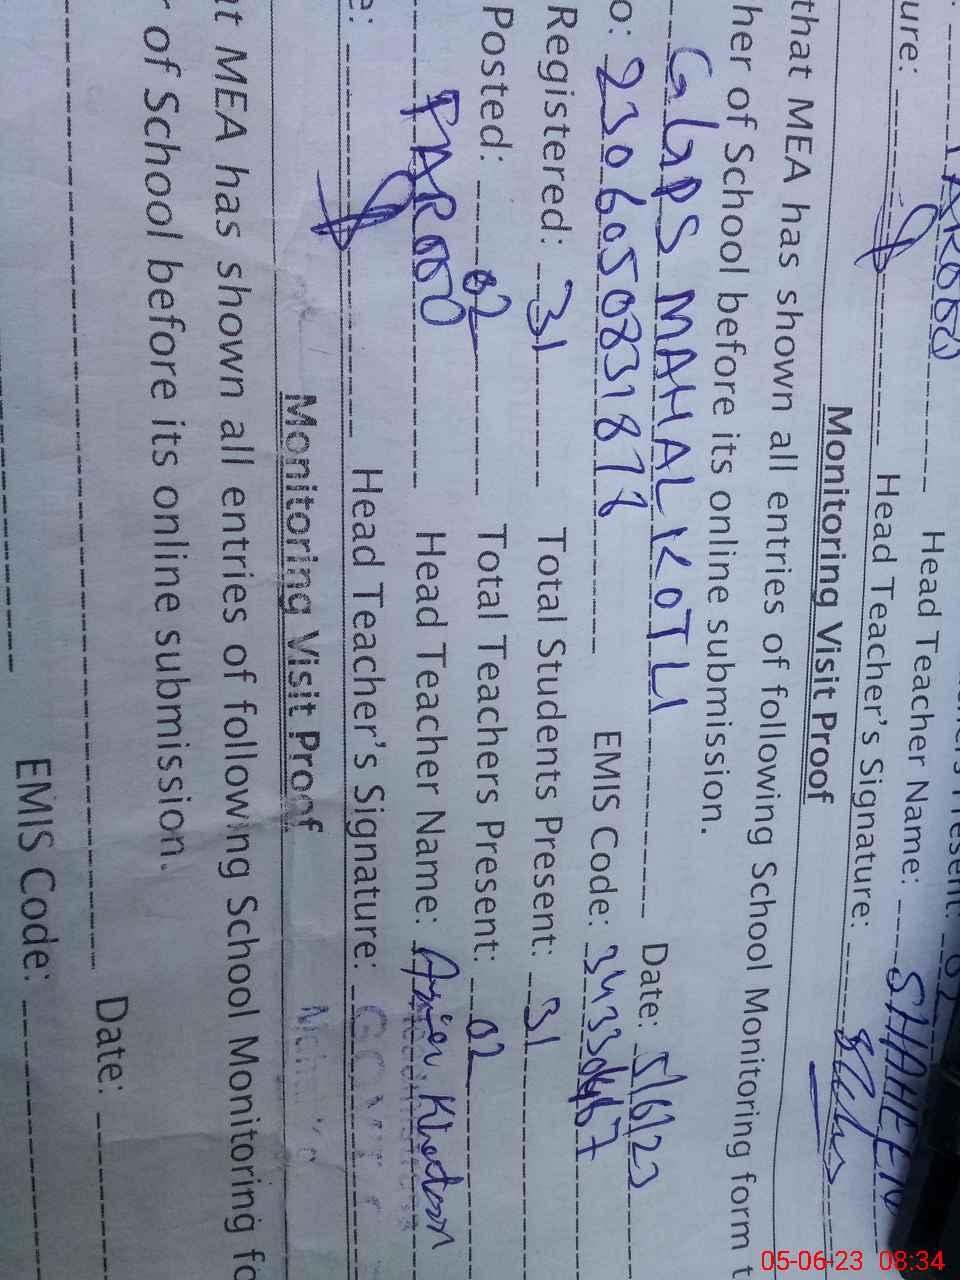 FAROOQ
Head Teacher Name: SHAHEEN
ure:
Head Teacher's Signature:
Monitoring Visit Proof
that MEA has shown all entries of following School Monitoring form t
her of School before its online submission.
GGPS MAHAL KOTLI Date: 5/6/23
o: EMIS Code:
Registered: 31 Total Students Present: 31
Posted: 02 Total Teachers Present: 02
FAROOQ Head Teacher Name:
e: Head Teacher's Signature:
Monitoring Visit Proof
at MEA has shown all entries of following School Monitoring fo
r of School before its online submission.
Date:
EMIS Code:
05-06-23 08:34